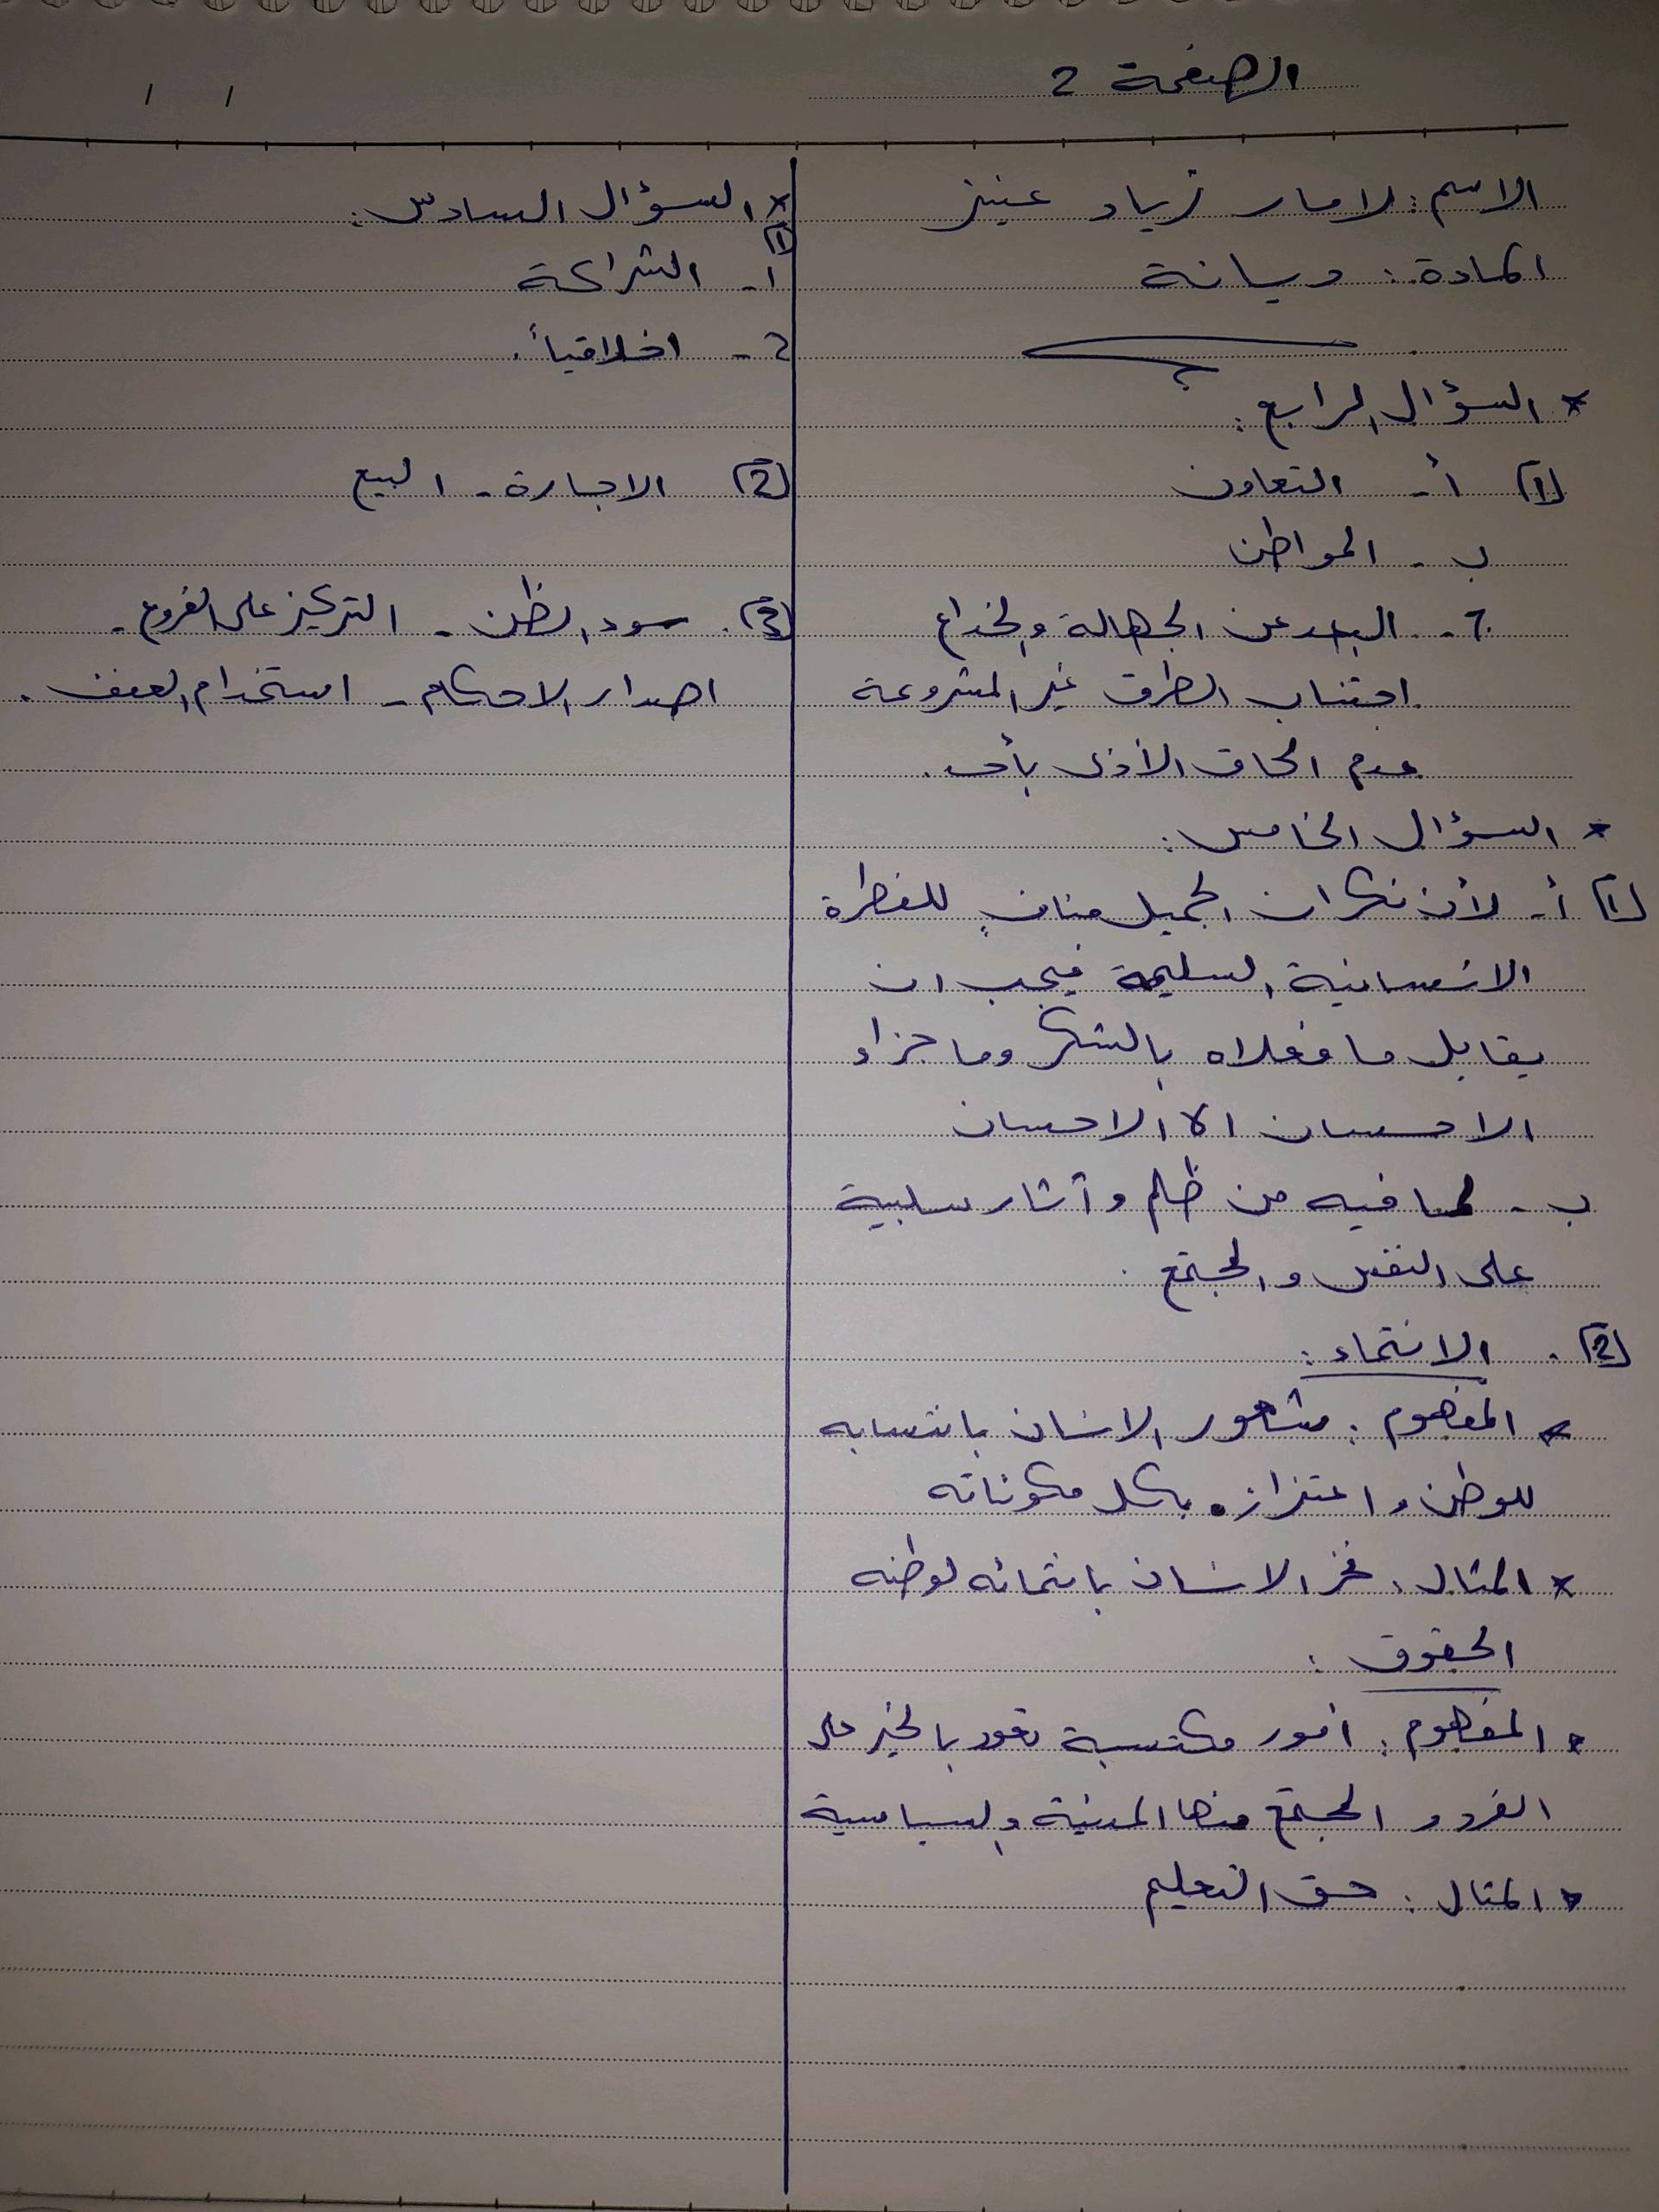 الصفحة 2
/ /
الاسم: لامار زياد عنيز
المادة: ديانة
* السؤال الرابع:
(1) أ- التعاون
ب- المواطن
ج- البعد عن الجهالة والخداع
اجتناب الطرق غير المشروعة
عدم الحاق الأذى بأحد.
* السؤال الخامس:
(1) أ- لأن نكران الجميل منافٍ للفطرة
الانسانية السليمة فيجب ان
يقابل ما فعلاه بالشكر وما جزاء
الاحسان الا الاحسان
ب- لما فيه من ظلم وآثار سلبية
على النفس والمجتمع.
(2). الانتماء:
* المفهوم: شعور الانسان بانتسابه
للوطن واعتزازه بكل مكوناته
* المثال: فخر الانسان بانتمائه لوطنه
الحقوق:
* المفهوم: امور مكتسبة تعود بالخير على
الفرد و المجتمع منها المدنية والسياسية
* المثال: حق التعليم
* السؤال السادس:
(1)
أ- الشراكة
2- اخلاقياً.
(2) الاجارة - البيع
(3). سوء الظن - التركيز على الفروع -
اصدار الاحكام - استخدام العنف.